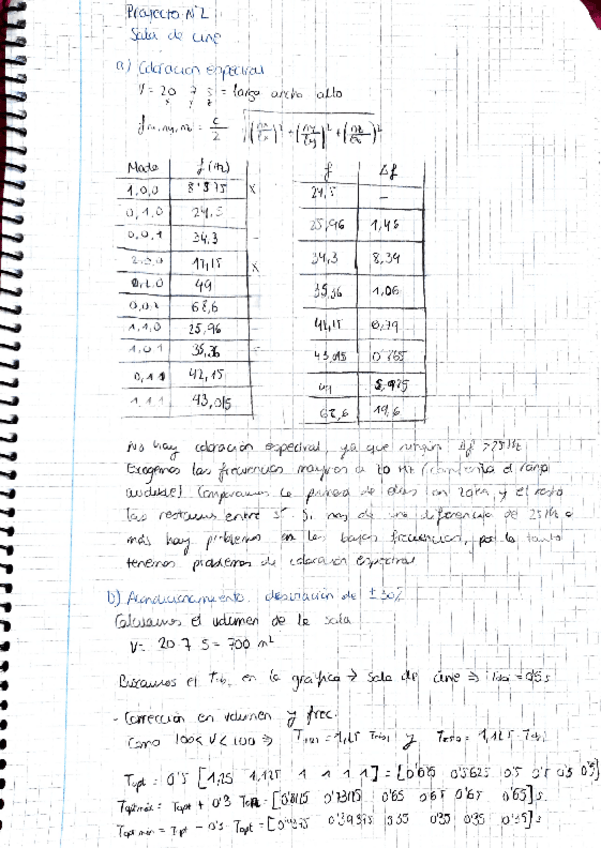 Proyecto Nº2
Sala de cine
a) Coloración espectral
V = 20 7 5 = largo ancho alto
x y z
f nx, ny, nz = c/2 √((nx/lx)² + (ny/ly)² + (nz/lz)²)
Modo f (Hz)
1,0,0 8'575 x
0,1,0 24,5
0,0,1 34,3 -
2,0,0 17,15 x
0,2,0 49
0,0,2 68,6
1,1,0 25,96
1,0,1 35,36 -
0,1,1 42,15
1,1,1 43,015
f Δf
24,5 —
25,96 1,46
34,3 8,34
35,36 1,06
42,15 6,79
43,015 0'865
49 5,985
68,6 19,6
No hay coloración espectral, ya que ningún Δf > 25 Hz
Escogemos las frecuencias mayores de 20 Hz el rango
audible) Comparamos la primera de ellas con 20Hz y el resto
las restamos entre sí. Si hay una diferencia de 25 Hz o
más hay problemas en las bajas frecuencias, por lo tanto
tenemos problemas de coloración espectral
b) Acondicionamiento. desviación de ± 30%
Calculamos el volumen de la sala
V = 20 7 5 = 700 m²
Buscamos el en la gráfica → Sala de cine ⇒ = 0'5 s
- Corrección en volumen y frec.
Como 100 < V < y
Topt = 0'5 [1,25 1,125 1 1 1 1] = [0'625 0'5625 0'5 0'5 0'5 0'5]
Topt máx = Topt + 0'3 Topt = [0'8125 0'73125 0'65 0'65 0'65 0'65] s
Topt min = Topt - 0'3 Topt = [0'4375 0'39375 0'35 0'35 0'35 0'35] s